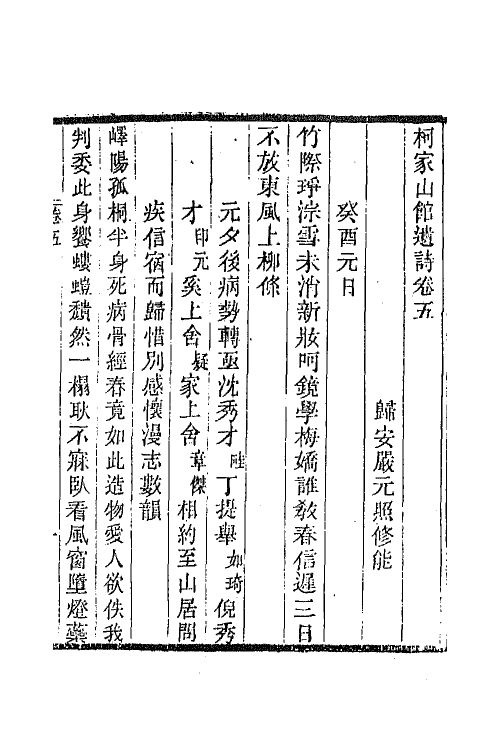 柯家山館遺詩卷五
歸安嚴元照修能
癸酉元日
竹際琤淙雪未消新妝呵鏡學梅嬌誰教春信遲三日
不放東風上柳條
元夕後病勢轉亟沈秀才 丁提舉如琦倪秀
才印元奚上舍疑家上舍章傑相約至山居問
疾信宿而歸惜別感懷漫志數韻
嶧陽孤桐半身死病骨經春竟如此造物愛人欲佚我
判委此身饗螻螘穨然一榻耿不寐臥看風窗墮燈蘂
卷五
一